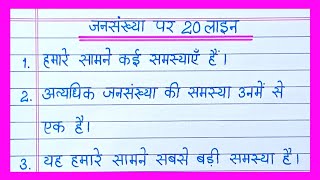 जनसंख्या पर 20 लाइन
1. हमारे सामने कई समस्याएँ हैं।
2. अत्यधिक जनसंख्या की समस्या उनमें से
एक है।
3. यह हमारे सामने सबसे बड़ी समस्या है।